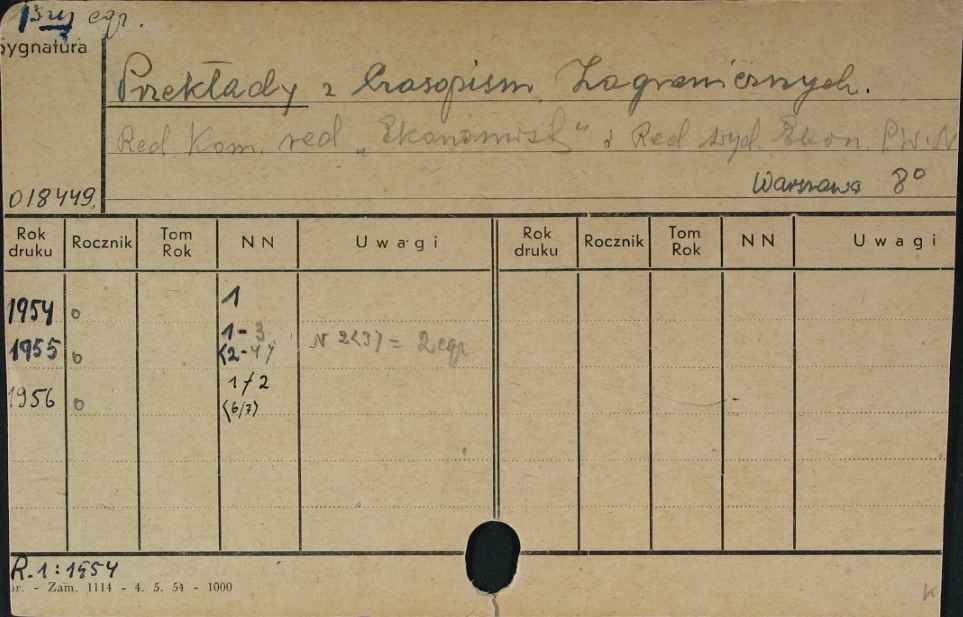 egz.
Sygnatura
Przekłady z Czasopism Zagranicznych.
Red Kom. red „Ekonomista" i Red wyd. Ekon. PWN
018449.
Warszawa 8°
Rok druku Rocznik Tom Rok NN Uwagi Rok druku Rocznik Tom Rok NN Uwagi
1954 0 1
1955 0 1-3 <2-4> N 2<3> = 2 egz
1956 0 1/2 <6/7>
R.1:1954
- Zam. 1114 - 4. 5. 54 - 1000
K